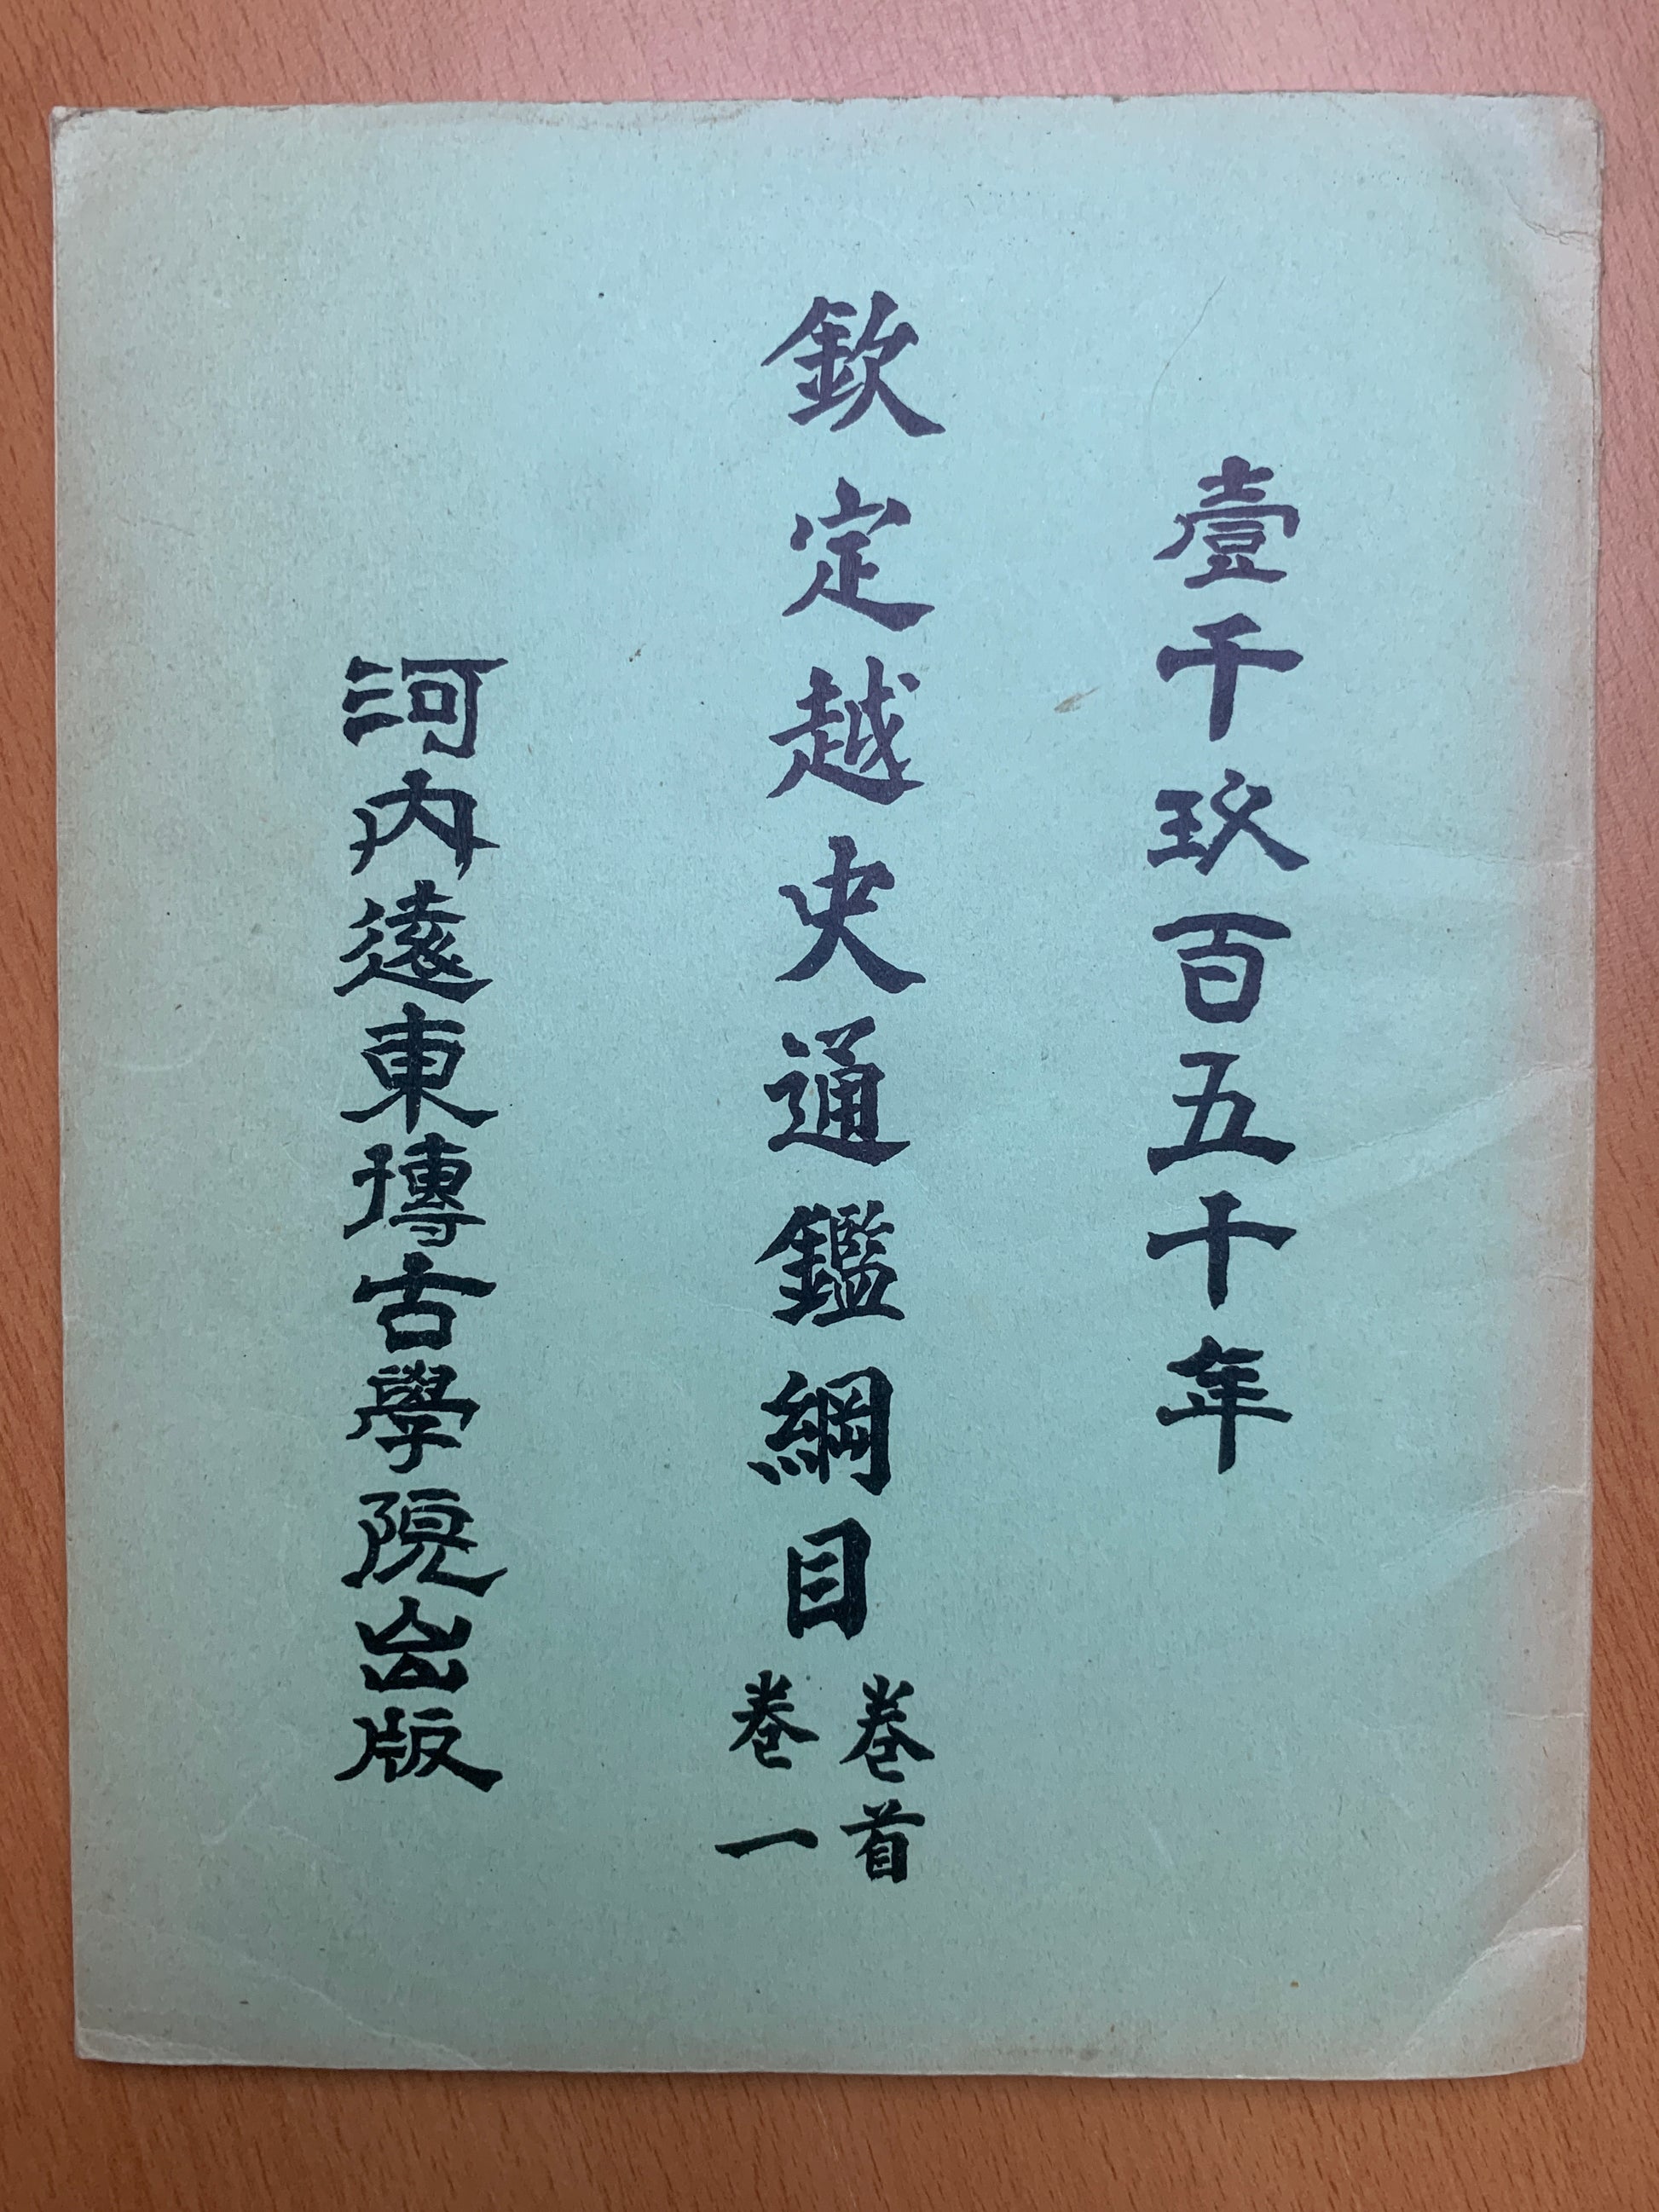 壹千玖百五十年
欽定越史通鑑綱目
卷首
卷一
河內遠東博古學院出版